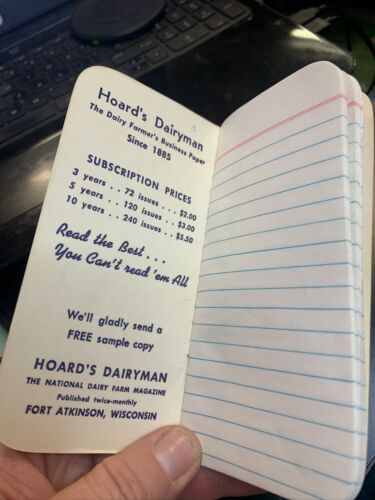 Hoard's Dairyman
The Dairy Farmer's Business Paper
Since 1885
SUBSCRIPTION PRICES
3 years . . 72 issues . . . $2.00
5 years . . 120 issues . . $3.00
10 years . . 240 issues . . $5.50
Read the Best . . .
You Can't read 'em All
We'll gladly send a
FREE sample copy
HOARD'S DAIRYMAN
THE NATIONAL DAIRY FARM MAGAZINE
Published twice-monthly
FORT ATKINSON, WISCONSIN